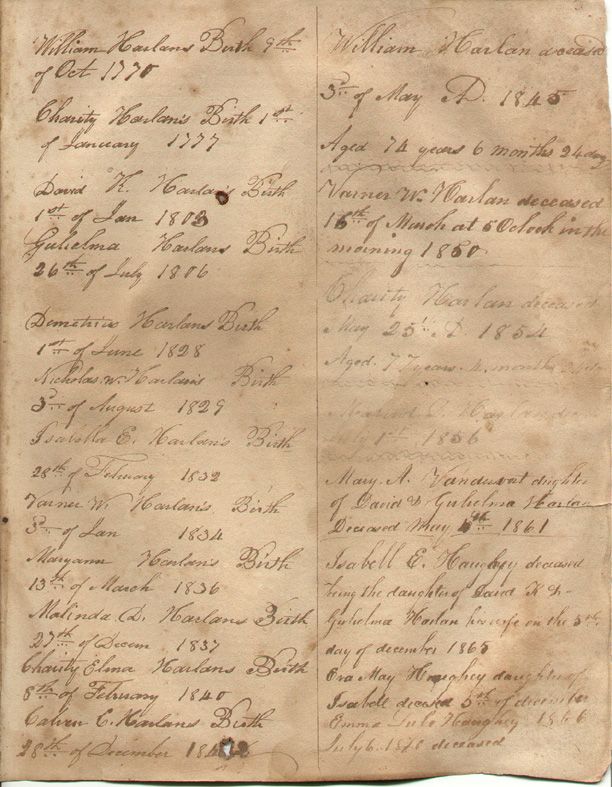 William Harlans Birth 9th
of Oct 1770
Charity Harlan's Birth 1st
of January 1777
David K. Harlan's Birth
1st of Jan 1803
Gulielma Harlans Birth
26th of July 1806
Demetrius Harlans Birth
1st of June 1828
Nicholas. W. Harlan's Birth
3rd of August 1829
Isabella E. Harlan's Birth
28th of February 1832
Varner W. Harlan's Birth
3rd of Jan 1834
Maryann Harlan's Birth
13th of March 1836
Malinda D. Harlans Birth
27th of Decem 1837
Charity Elma Harlans Birth
8th of February 1840
Calvin C. Harlans Birth
28th of December
William Harlan deceased
3rd of May AD. 1845
Aged 74 years 6 months 24 day
Varner W. Harlan deceased
16th of March at 5 Oclock in the
morning 1850
Charity Harlan deceased
May 25th A.D. 1854
Aged 77 years. 4. months
1st 1856
Mary. A. Vandervort daughter
of David & Gulielma Harlan
Deceased May 1861
Isabell E. Haughey deceased
being the daughter of David K &
Gulielma Harlan his wife on the 5th
day of december 1865
Ora May Haughey daughter of
Isabell deceased 5th of december
Emma Haughey 1866
July 6. deceased